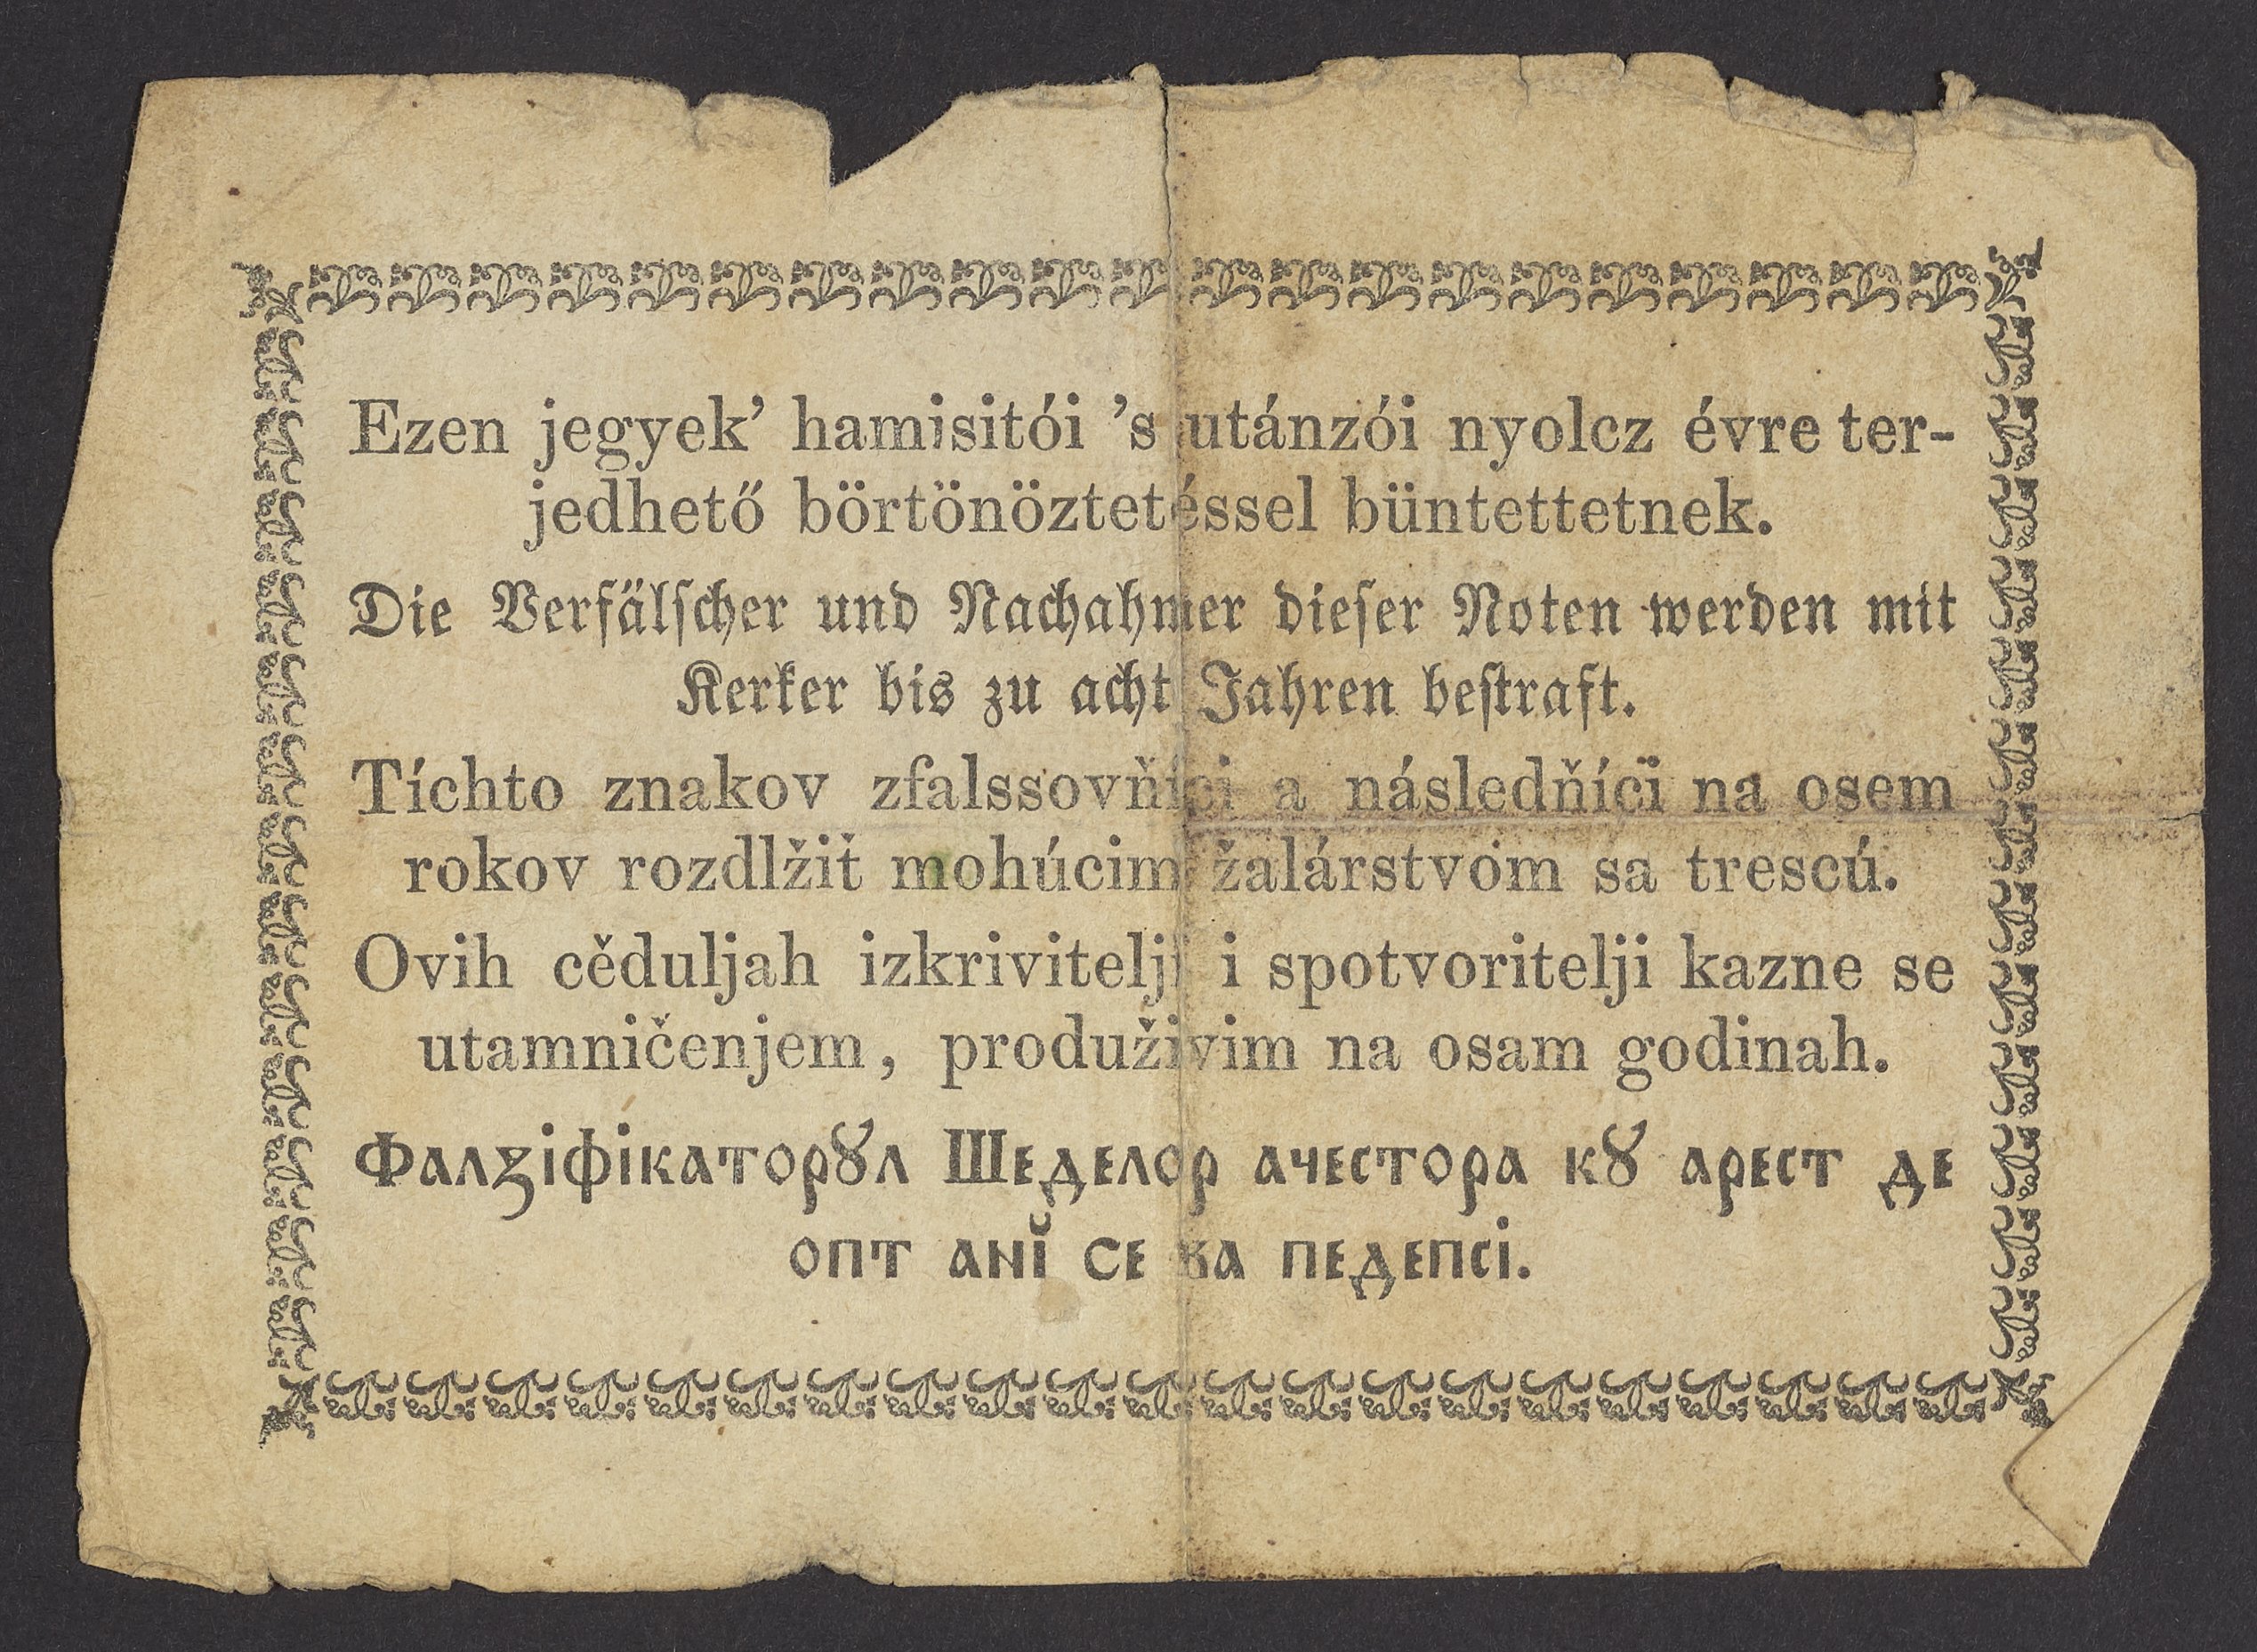 Ezen jegyek’ hamisitói ’s utánzói nyolcz évre ter-
jedhető börtönöztetéssel büntettetnek.
Die Verfälſcher und Nachahmer dieſer Noten werden mit
Kerker bis zu acht Jahren beſtraft.
Tíchto znakov zfalssovňíci a následňíci na osem
rokov rozdlžiť mohúcim žalárstvom sa trescú.
Ovih cěduljah izkrivitelji i spotvoritelji kazne se
utamničenjem, produživim na osam godinah.
Фалꙁіфікаторꙋл Шеделор ачестора кꙋ арест де
опт анĭ се ва педепсі.